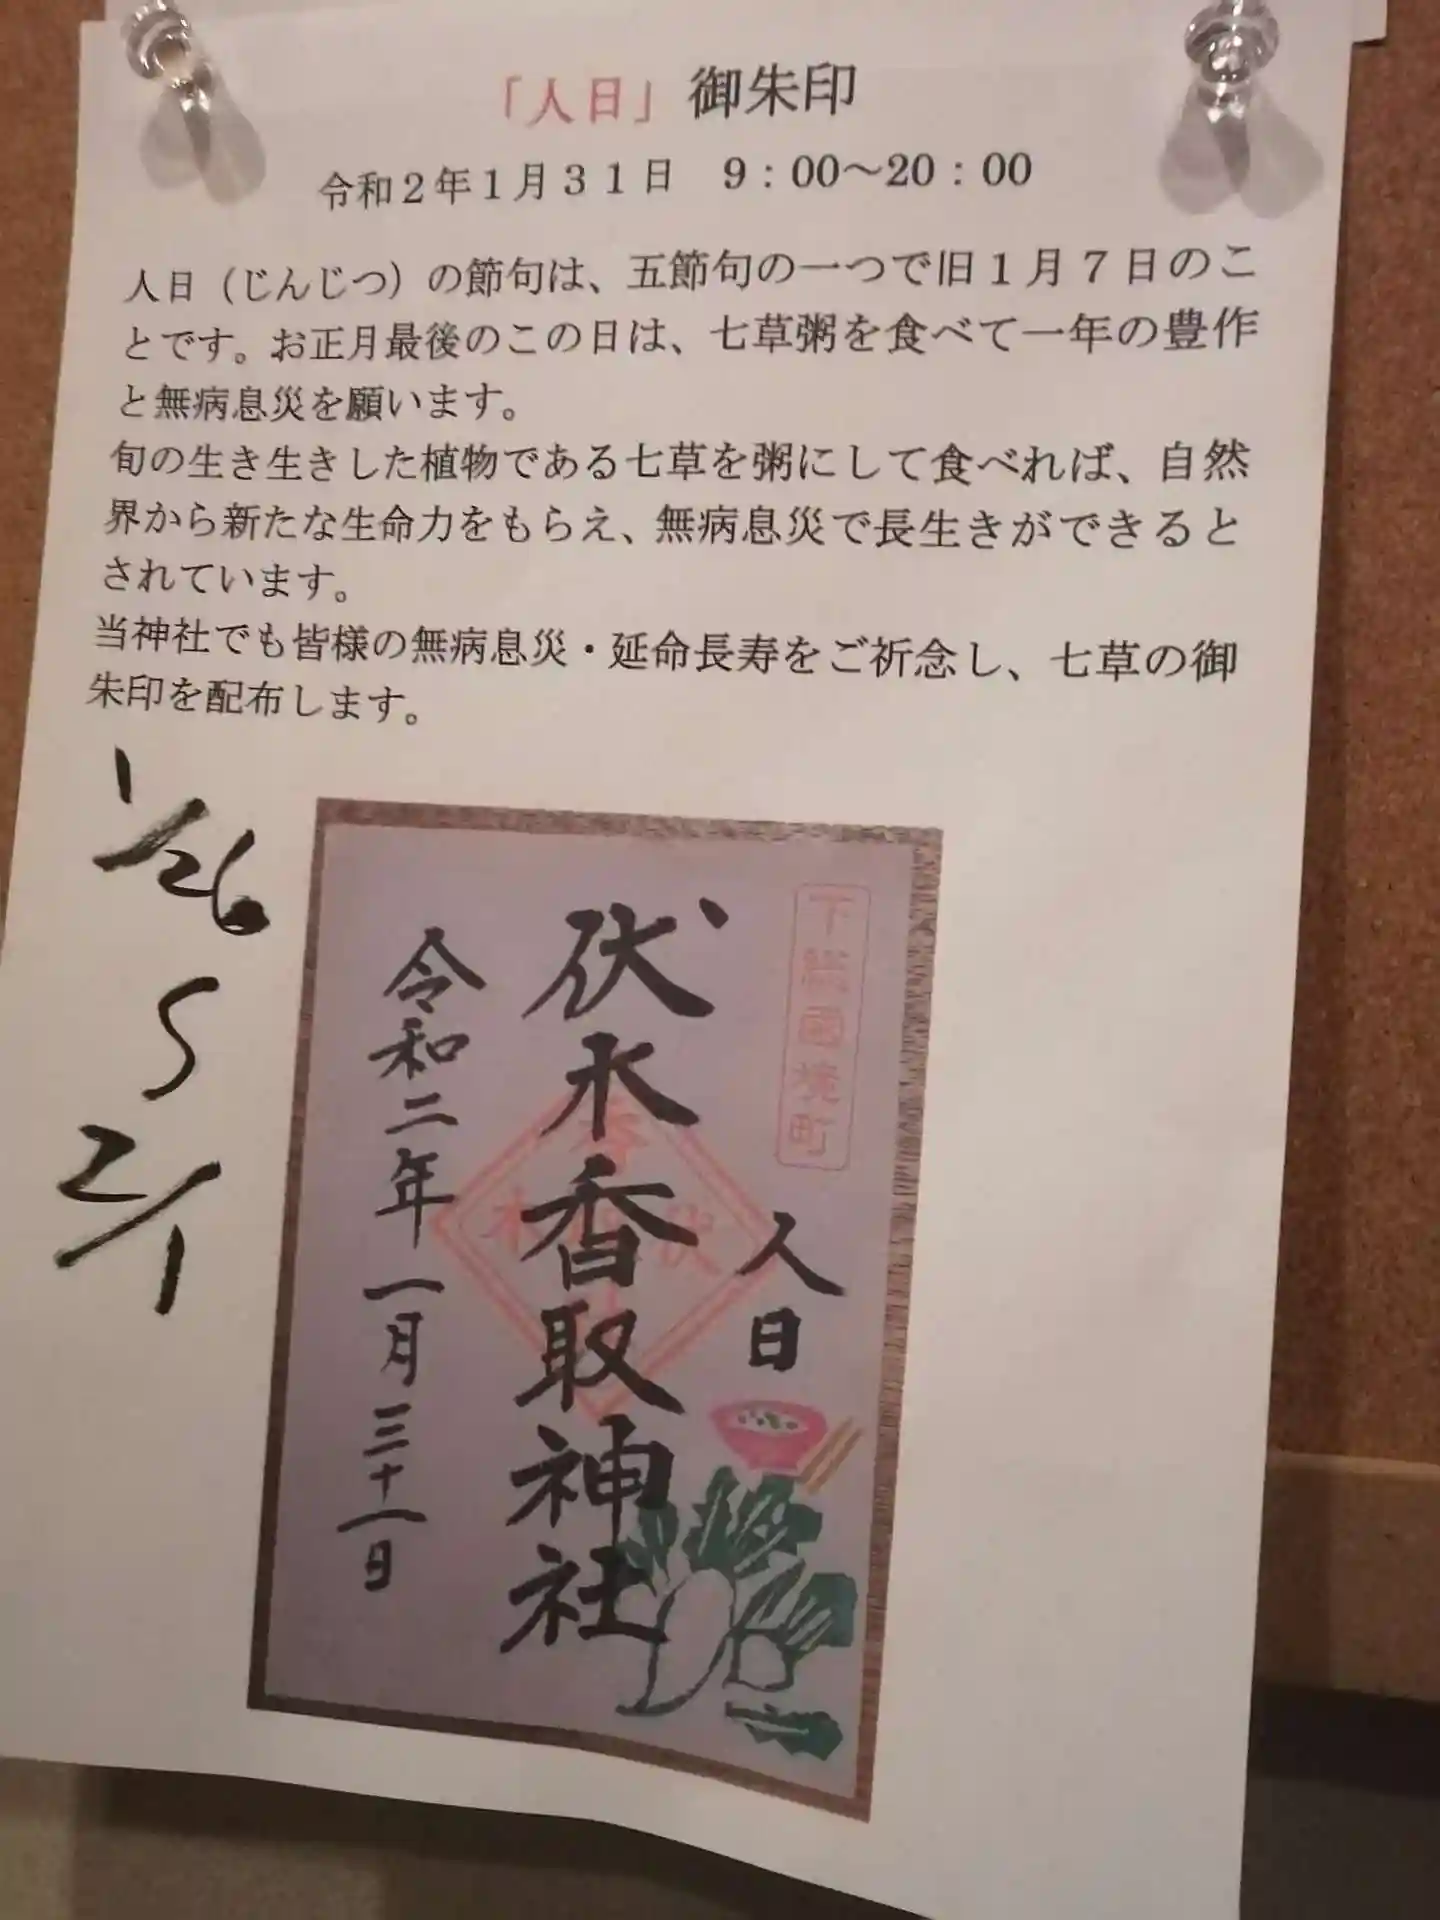 「人日」御朱印
令和２年１月３１日　9：00～20：00
人日（じんじつ）の節句は、五節句の一つで旧１月７日のこ
とです。お正月最後のこの日は、七草粥を食べて一年の豊作
と無病息災を願います。
旬の生き生きした植物である七草を粥にして食べれば、自然
界から新たな生命力をもらえ、無病息災で長生きができると
されています。
当神社でも皆様の無病息災・延命長寿をご祈念し、七草の御
朱印を配布します。
1/26
〜
2/1
下総國境町
人日
伏木香取神社
令和二年一月三十一日